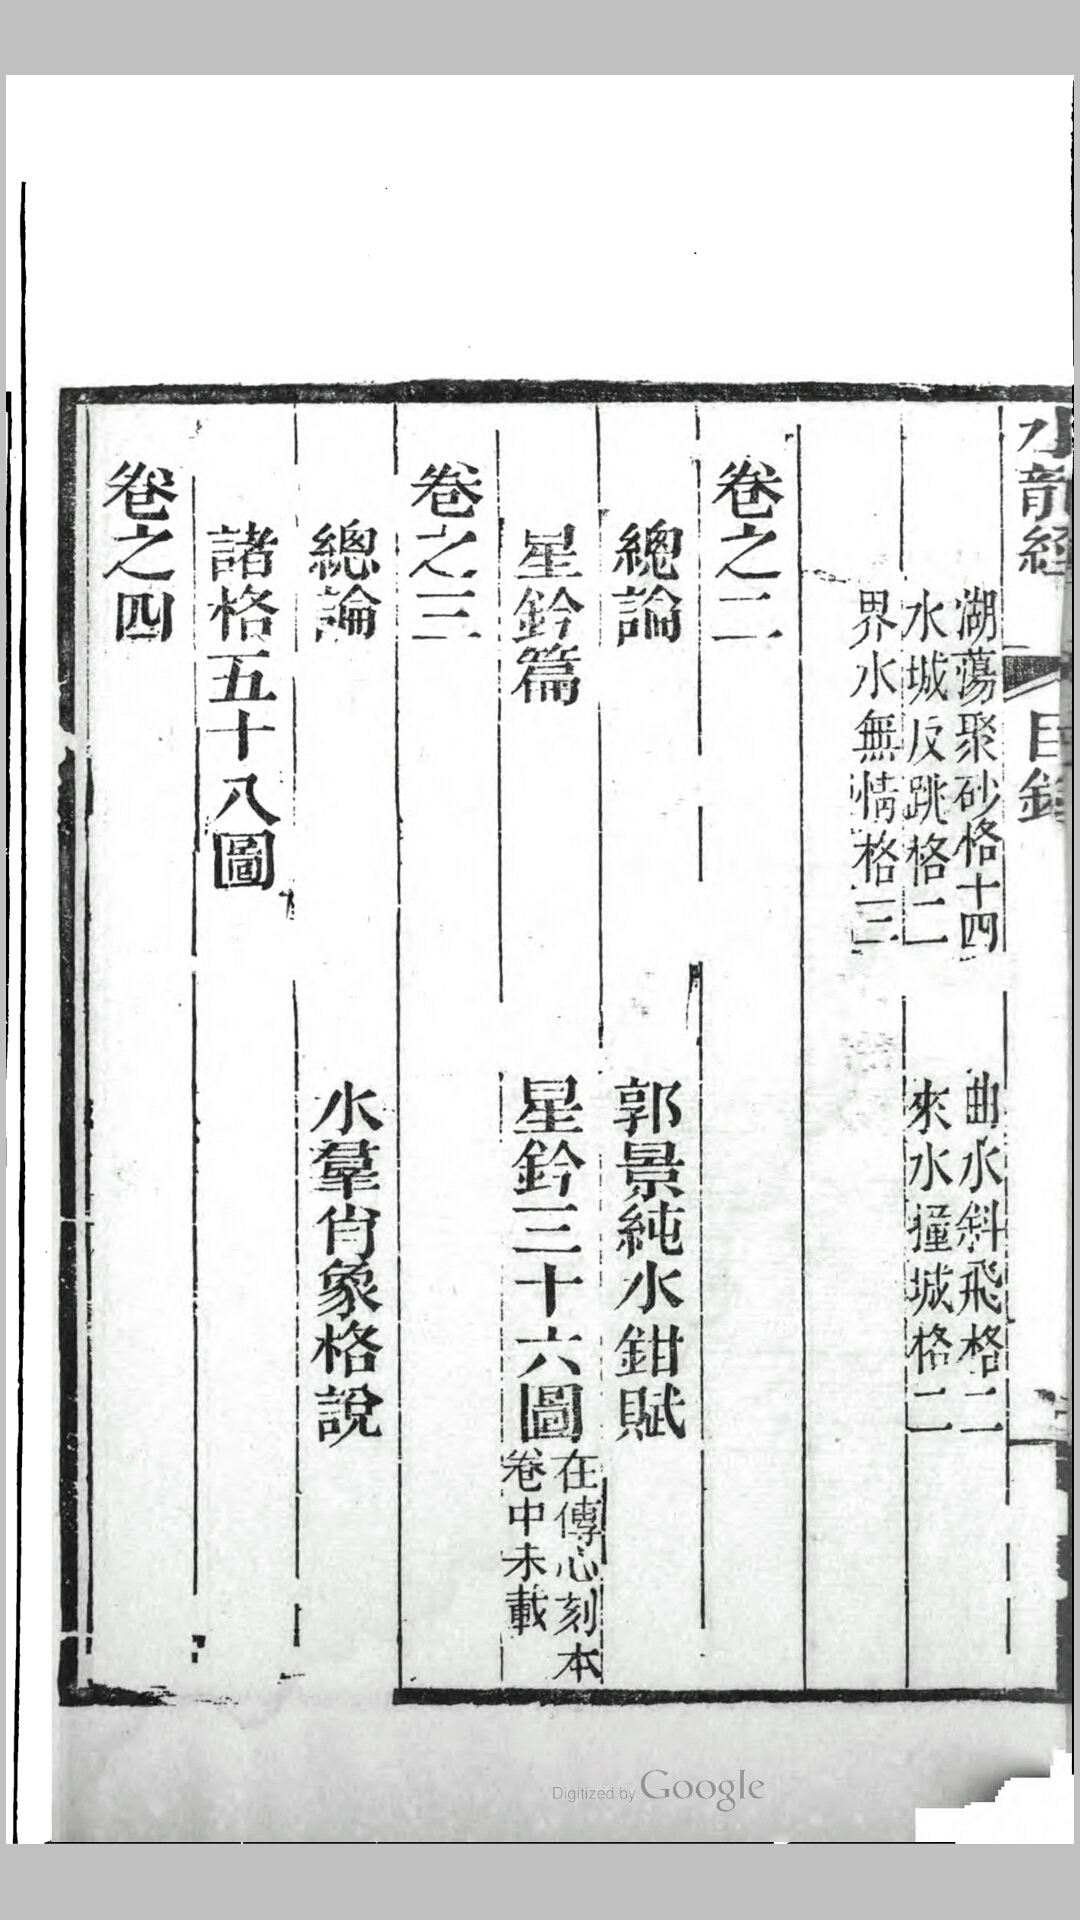 水龍經 目錄
湖蕩聚砂格十四 曲水斜飛格二
水城反跳格二 來水撞城格二
界水無情格三
卷之二
總論 郭景純水鉗賦
星鈐篇 星鈐三十六圖 在傳心刻本
卷中未載
卷之三
總論 水羣肖象格說
諸格五十八圖
卷之四
Digitized by Google